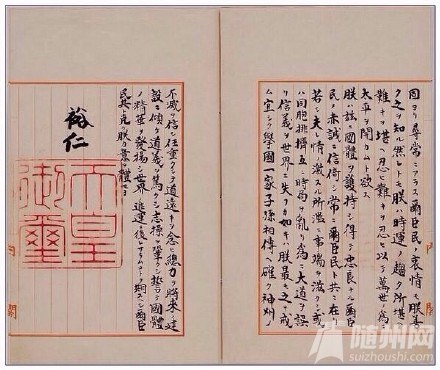 固ヨリ尋常ニアラス爾臣民ノ衷情モ朕善
ク之ヲ知ル然レトモ朕ハ時運ノ趨ク所堪ヘ
難キヲ堪ヘ忍ヒ難キヲ忍ヒ以テ萬世ノ爲ニ
太平ヲ開カムト欲ス
朕ハ茲ニ國體ヲ護持シ得テ忠良ナル爾臣
民ノ赤誠ニ信倚シ常ニ爾臣民ト共ニ在リ
若シ夫レ情ノ激スル所濫ニ事端ヲ滋クシ或
ハ同胞排擠互ニ時局ヲ亂リ爲ニ大道ヲ誤
リ信義ヲ世界ニ失フカ如キハ朕最モ之ヲ戒
ム宜シク擧國一家子孫相傳ヘ確ク神州ノ
不滅ヲ信シ任重クシテ道遠キヲ念ヒ總力ヲ將來ノ建
設ニ傾ケ道義ヲ篤クシ志操ヲ鞏クシ誓テ國體
ノ精華ヲ發揚シ世界ノ進運ニ後レサラムコトヲ期スヘシ爾臣
民其レ克ク朕カ意ヲ體セヨ
裕仁
天皇
御璽
閣
随州网
suizhoushi.com